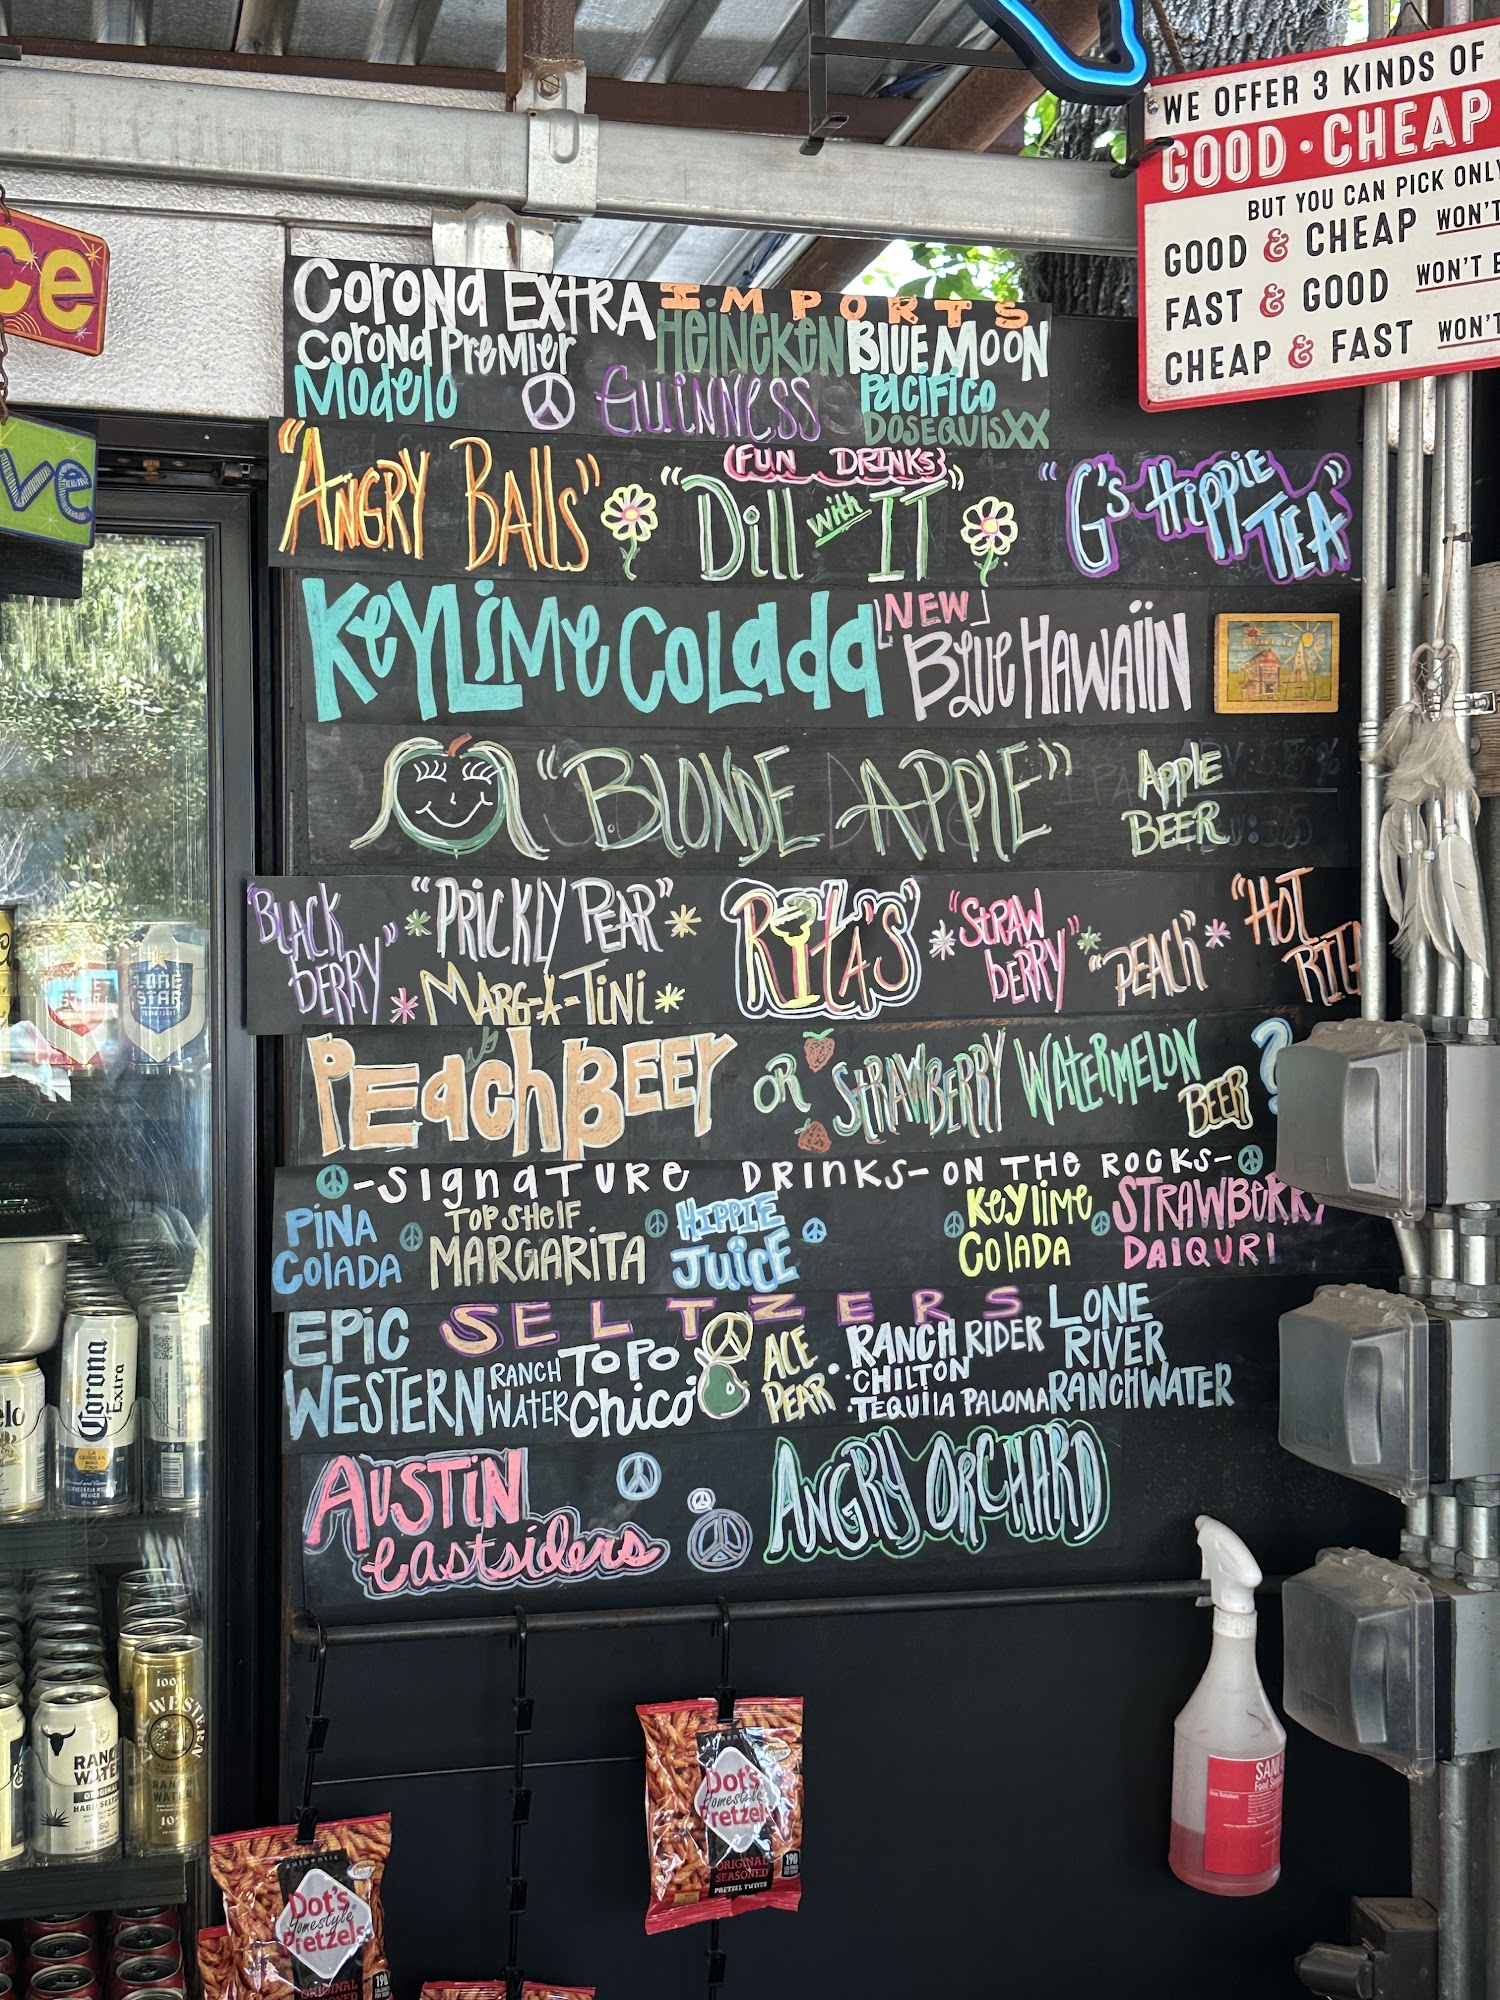 WE OFFER 3 KINDS OF
GOOD · CHEAP
BUT YOU CAN PICK ONLY
GOOD & CHEAP WON'T
FAST & GOOD WON'T
CHEAP & FAST WON'T
ce
ve
Corona Extra IMPORTS
Corona Premier HEINEKEN BLUE MOON
Modelo GUINNESS PACIFICO
DOSEQUISXX
(FUN DRINKS)
"ANGRY BALLS" "Dill with IT" "G's HiPPiE TEA"
KEYLIME COLADA [NEW] BLUE HAWAIIN
"BLONDE APPLE" APPLE BEER
"BLACK BERRY" "PRICKLY PEAR" MARG-A-TiNi "RITA'S" "STRAW bERRY" "PEACH" "HOT RITA
PEACH BEER OR STRAWBERRY WATERMELON BEER ?
-SIGNATURE DRINKS- ON THE ROCKS-
PiNA COLADA TOP SHELF MARGARITA HIPPIE JUICE KEYlime COLADA STRAWBERRY DAIQURI
SELTZERS
EPIC WESTERN RANCH WATER TOPO CHICO ACE PEAR RANCH RIDER
·CHILTON
·TEQUIlA PALOMA
LONE RIVER RANCHWATER
AUSTIN eastsiders ANGRY ORCHARD
LONE STAR
Corona Extra
elo
RANCH WATER
ORIGINAL
WESTERN
RANCH WATER
Dot's
Homestyle
Pretzels
ORIGINAL SEASONED
PRETZEL TWISTS
190
Dot's
Homestyle
Pretzels
ORIGINAL
190
SANI